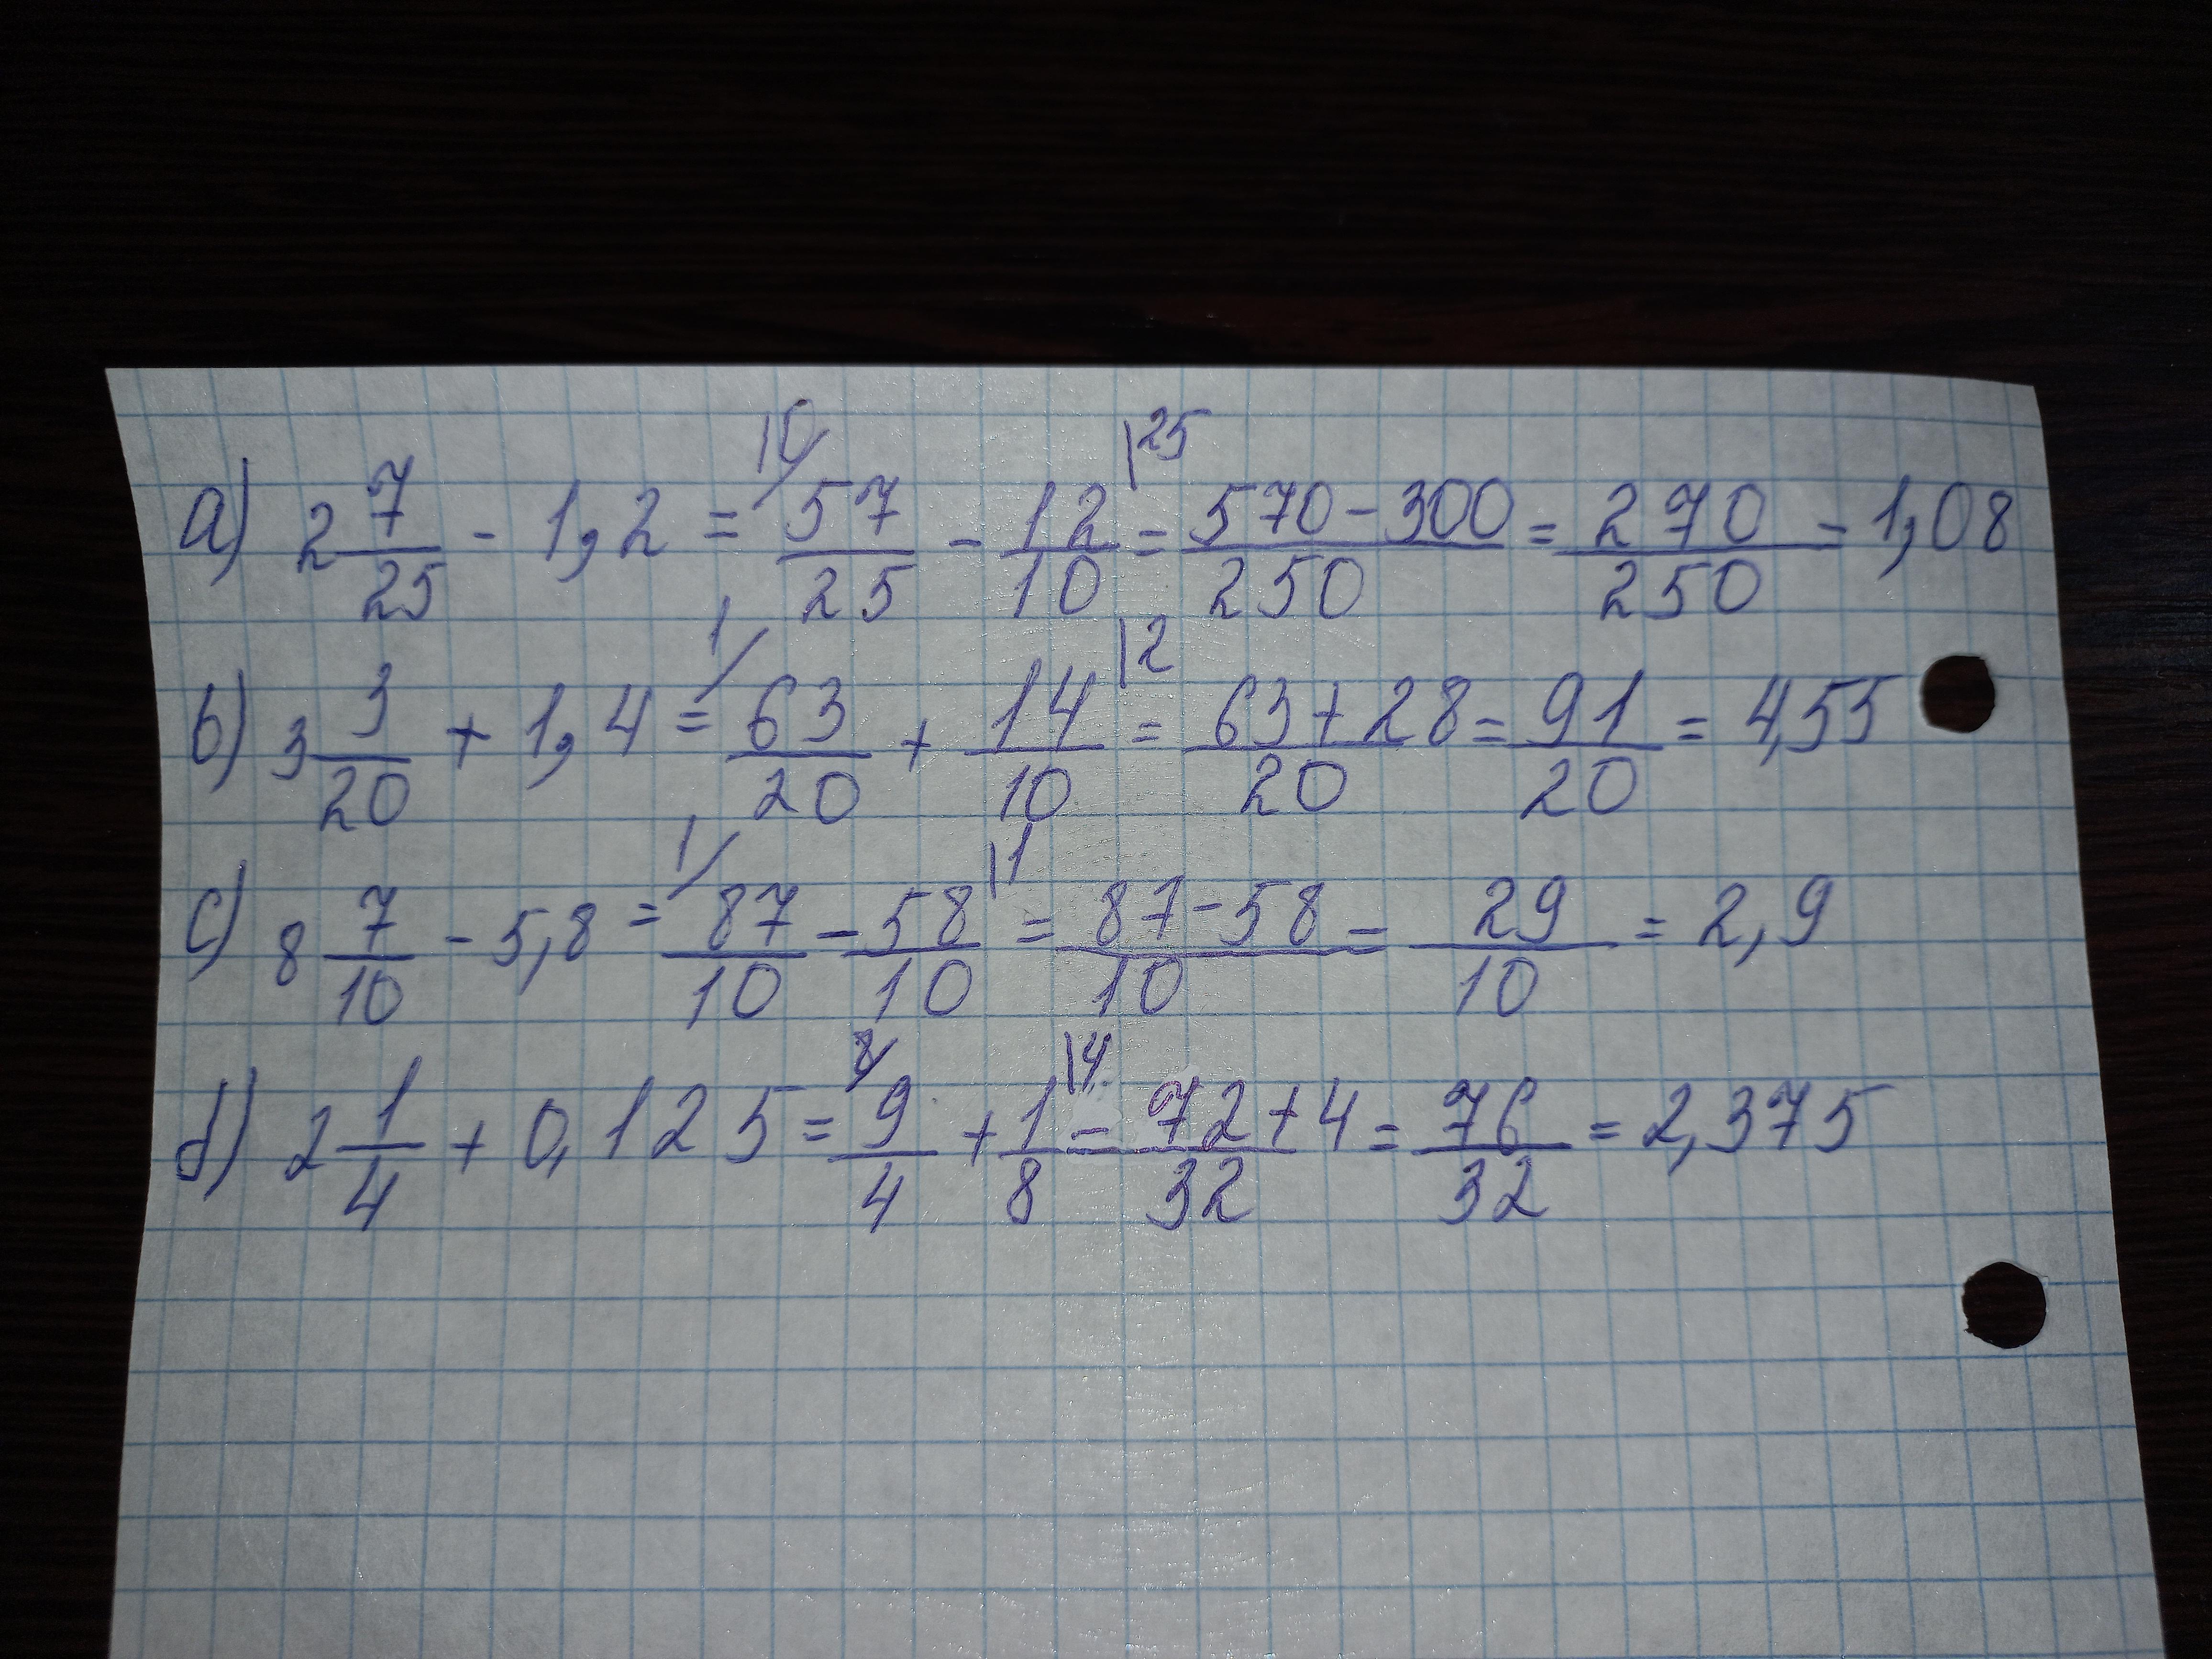 a) 2 7/25 - 1,2 = 10/ 57/25 - 12/10 |25 = 570-300/250 = 270/250 - 1,08
b) 3 3/20 + 1,4 = 1/ 63/20 + 14/10 |2 = 63+28/20 = 91/20 = 4,55
c) 8 7/10 - 5,8 = 1/ 87/10 - 58/10 |1 = 87-58/10 = 29/10 = 2,9
d) 2 1/4 + 0,125 = 8/ 9/4 + 1/8 |4 = 72+4/32 = 76/32 = 2,375